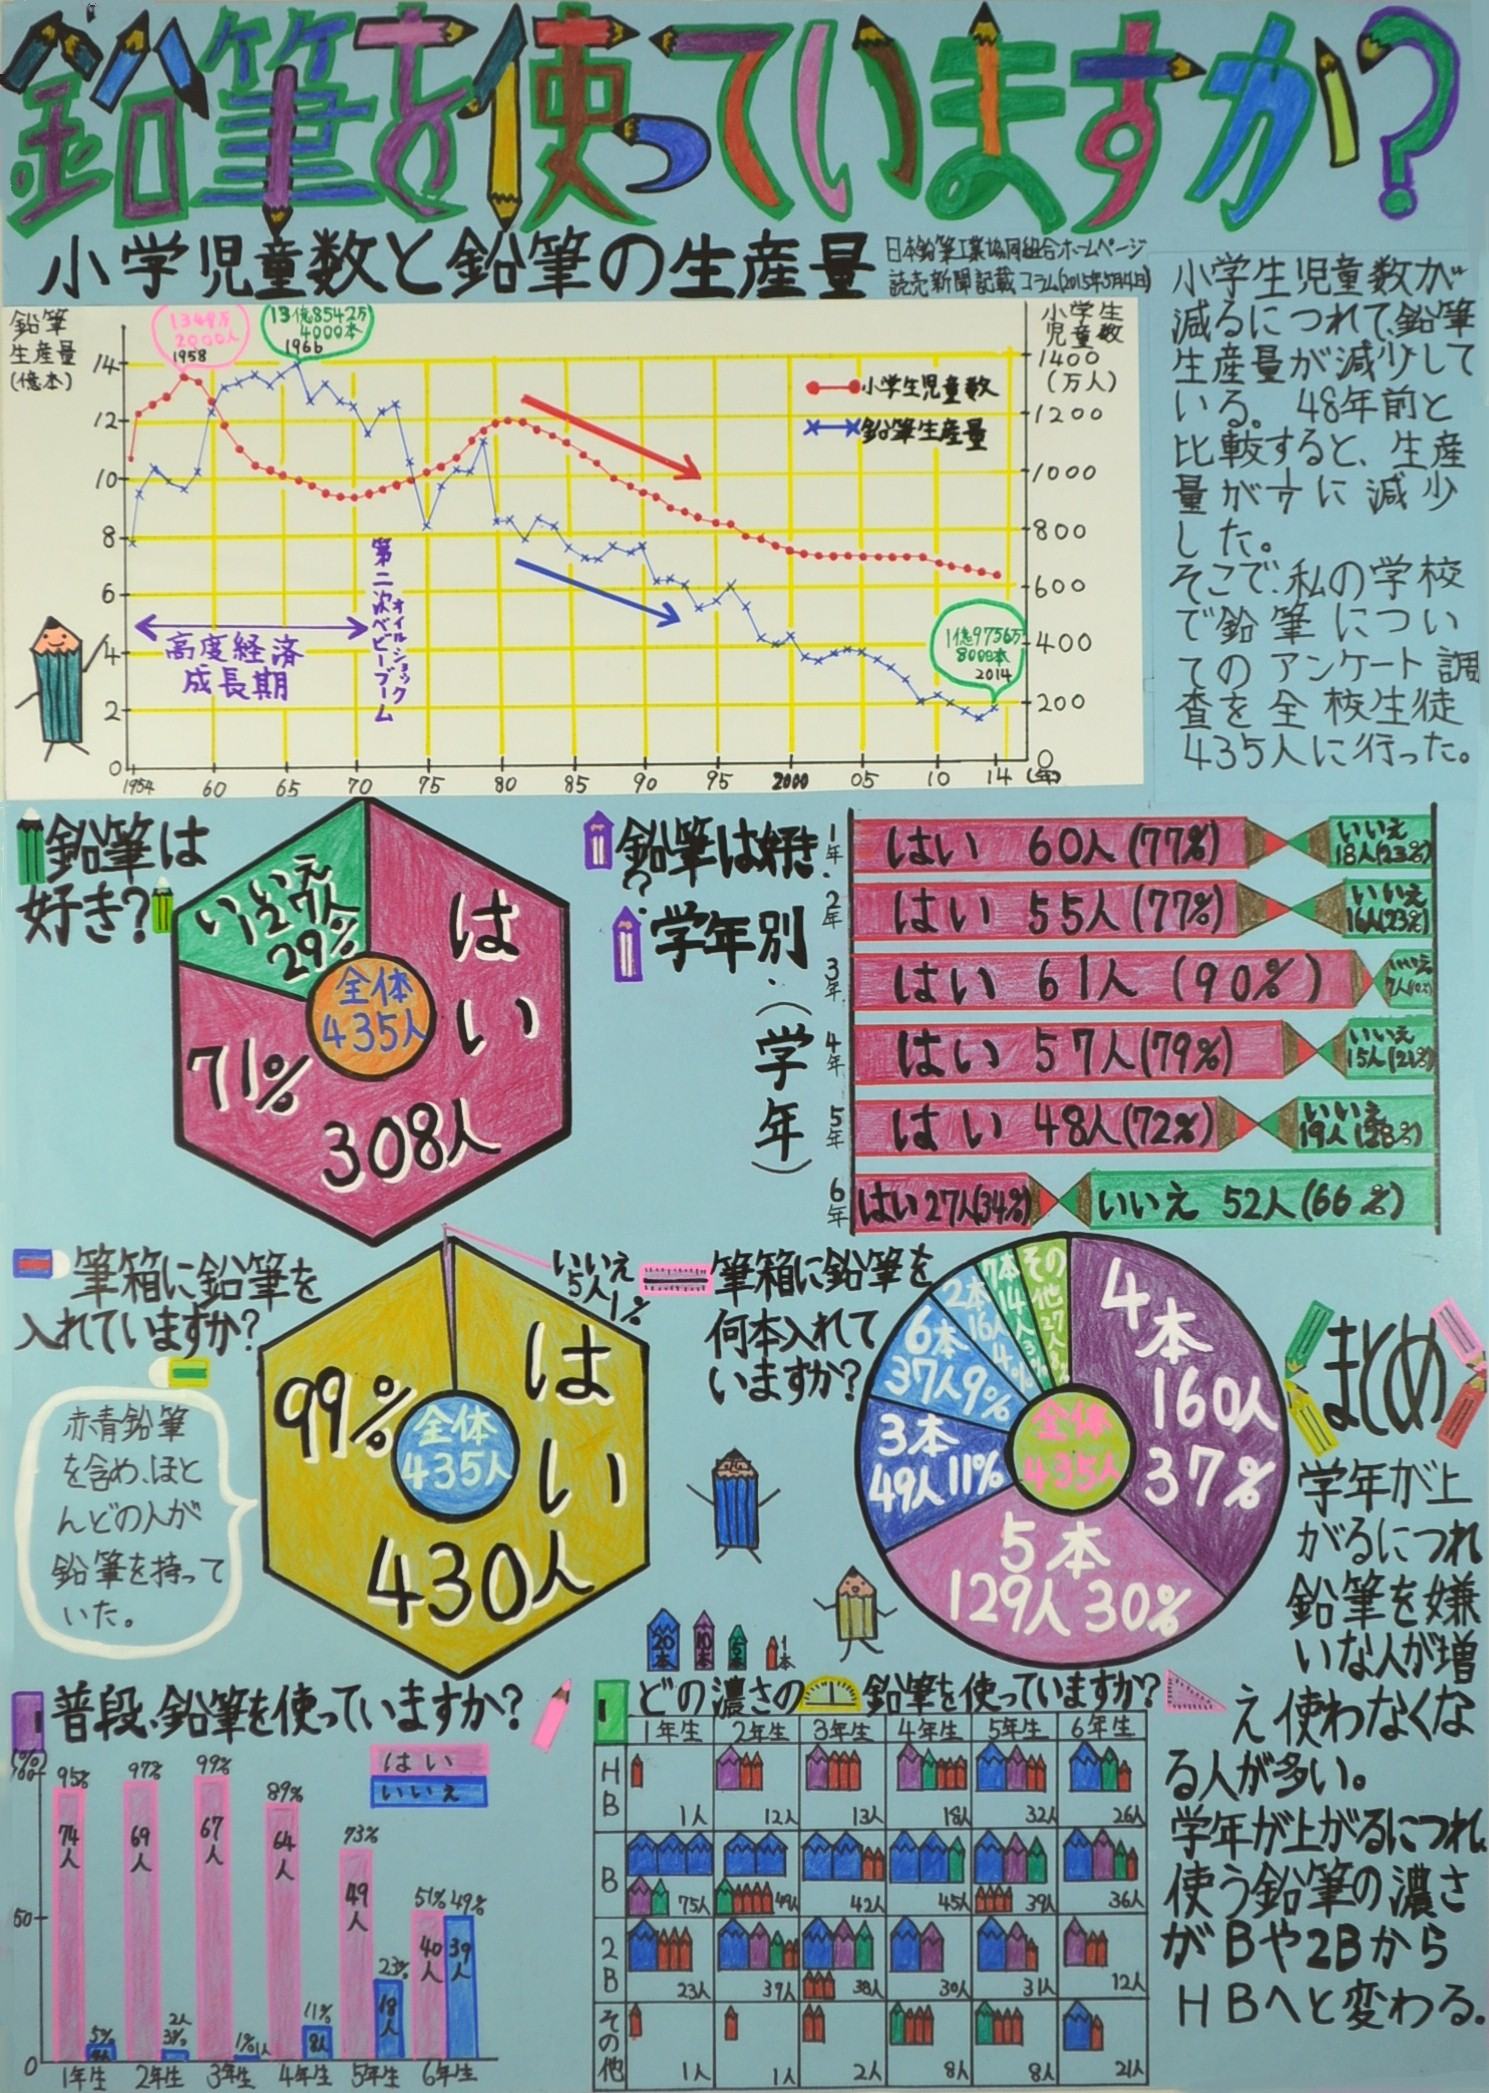 鉛筆を使っていますか?
小学児童数と鉛筆の生産量
日本鉛筆工業協同組合ホームページ
読売新聞記載 コラム(2015年5月4日)
鉛筆
生産量
(億本)
小学生
児童数
(万人)
1349万
2000人
1958
13億8542万
4000本
1966
小学生児童数
鉛筆生産量
14
12
10
8
6
4
2
0
1400
1200
1000
800
600
400
200
0
高度経済
成長期
第二次ベビーブーム
オイルショック
1億9756万
8000本
2014
1954 60 65 70 75 80 85 90 95 2000 05 10 14 (年)
小学生児童数が
減るにつれて、鉛筆
生産量が減少して
いる。48年前と
比較すると、生産
量が1/7に減少
した。
そこで、私の学校
で鉛筆につい
てのアンケート調
査を全校生徒
435人に行った。
鉛筆は
好き?
いいえ
29%
全体
435人
はい
71%
308人
鉛筆は好き
?
学年別
(学年)
1年 はい 60人(77%) いいえ 18人(23%)
2年 はい 55人(77%) いいえ 16人(23%)
3年 はい 61人(90%) いいえ 7人
4年 はい 57人(79%) いいえ 15人(21%)
5年 はい 48人(72%) いいえ 19人(28%)
6年 はい27人(34%) いいえ 52人(66%)
筆箱に鉛筆を
入れていますか?
いいえ
5人
1%
はい
99%
全体
435人
430人
赤青鉛筆
を含め、ほと
んどの人が
鉛筆を持って
いた。
筆箱に鉛筆を
何本入れて
いますか?
4本
160人
37%
5本
129人 30%
3本
49人 11%
6本
37人9%
2本
16人
4%
7本
14人
3%
その他
27人
全体
435人
まとめ
学年が上
がるにつれ
鉛筆を嫌
いな人が増
え使わなくな
る人が多い。
学年が上がるにつれ、
使う鉛筆の濃さ
がBや2Bから
HBへと変わる。
普段、鉛筆を使っていますか?
(%)
100
50
0
はい
いいえ
95% 97% 99% 89% 73% 51% 49%
74人 69人 67人 64人 49人 40人 39人
5% 4人
2人 3%
1% 1人
11% 8人
23% 18人
1年生 2年生 3年生 4年生 5年生 6年生
20本 10本 5本 1本
どの濃さの鉛筆を使っていますか?
1年生 2年生 3年生 4年生 5年生 6年生
HB 1人 12人 13人 18人 32人 26人
B 75人 49人 42人 45人 39人 36人
2B 23人 39人 38人 30人 31人 12人
その他 1人 1人 2人 8人 8人 21人